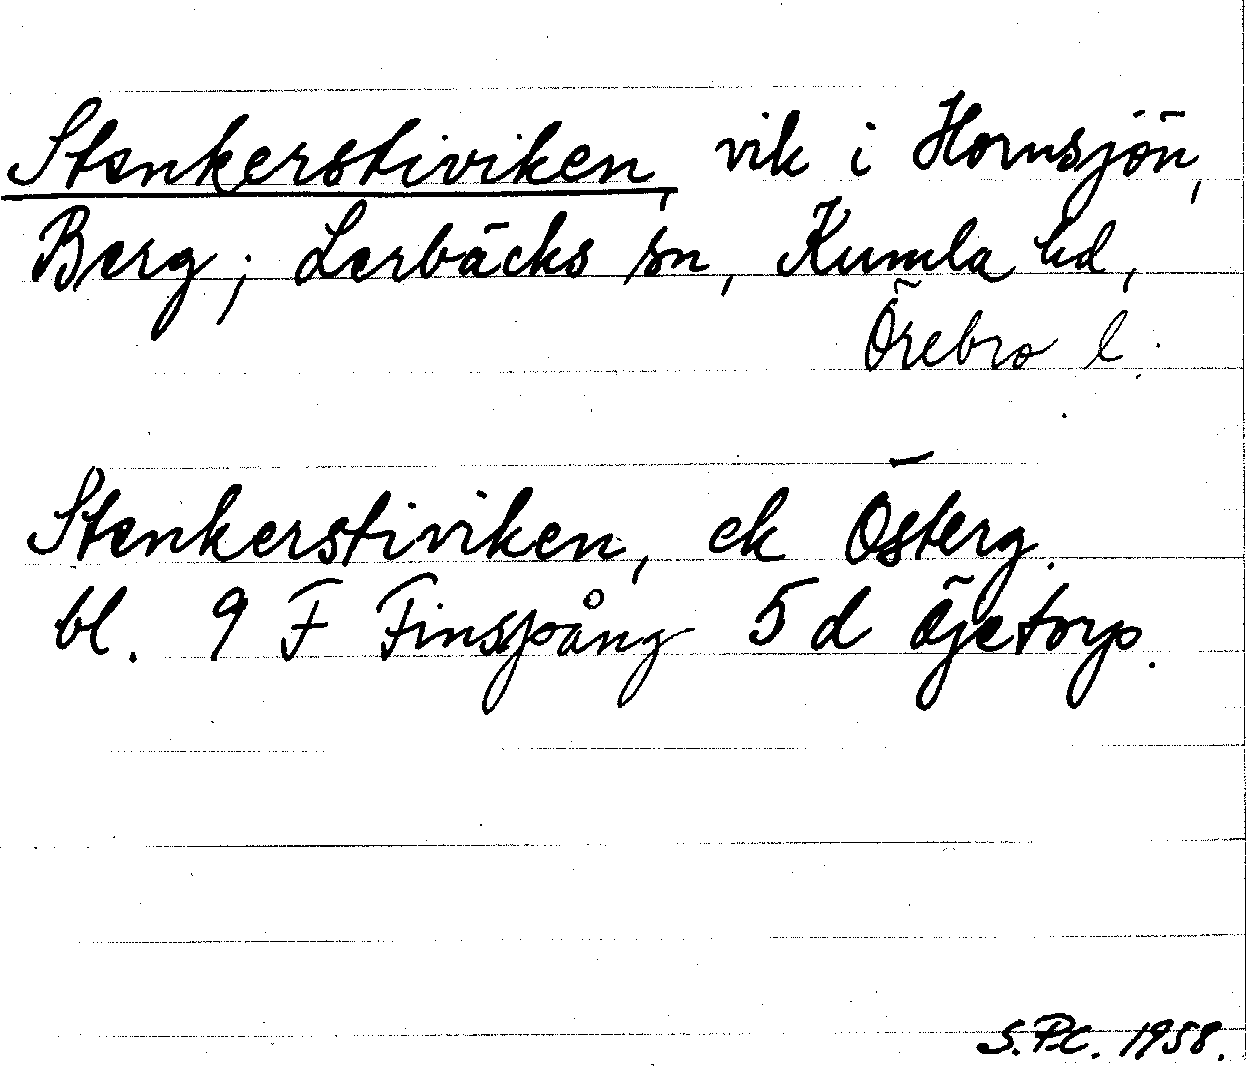 Stenkerstiviken, vik i Hornsjön,
Berg; Lerbäcks sn, Kumla hd,
Örebro l.
Stenkerstiviken, ek Österg.
bl. 9 F Finspång 5 d Öjetorp.
S.P.C. 1958.